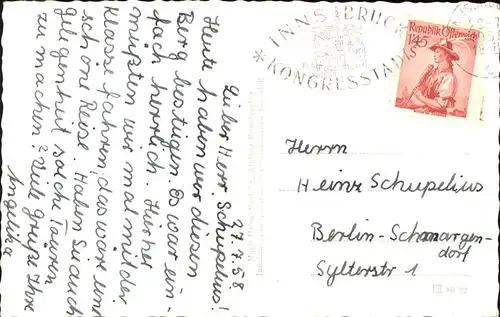 27.7.58
Lieber Herr Schupelius!
Heute haben wir diesen
Berg bestiegen. Es war ein-
fach herrlich. Hierher
müßten wir mal mit der
Klasse fahren, das wäre eine
schöne Reise. Haben Sie auch
Gelegenheit solche Touren
zu machen? Viele Grüße Ihre
Angelika
INNSBRUCK
* KONGRESSTADT
Republik Österreich
1.45
S
Herrn
Heinz Schupelius
Berlin-Schmargen-
dorf
Sylterstr 1